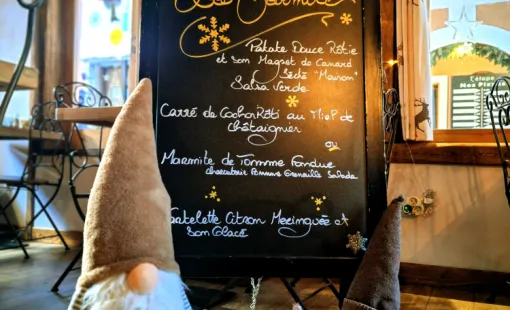 La Marmite
Patate Douce Rôtie
et son Magret de Canard
Séché "Maison"
Salsa Verde
Carré de Cochon Rôti au Miel de
Châtaignier
ou
Marmite de Tomme Fondue
Charcuterie Pomme Grenaille Salade
Tartelette Citron Meringuée et
Son Glacé